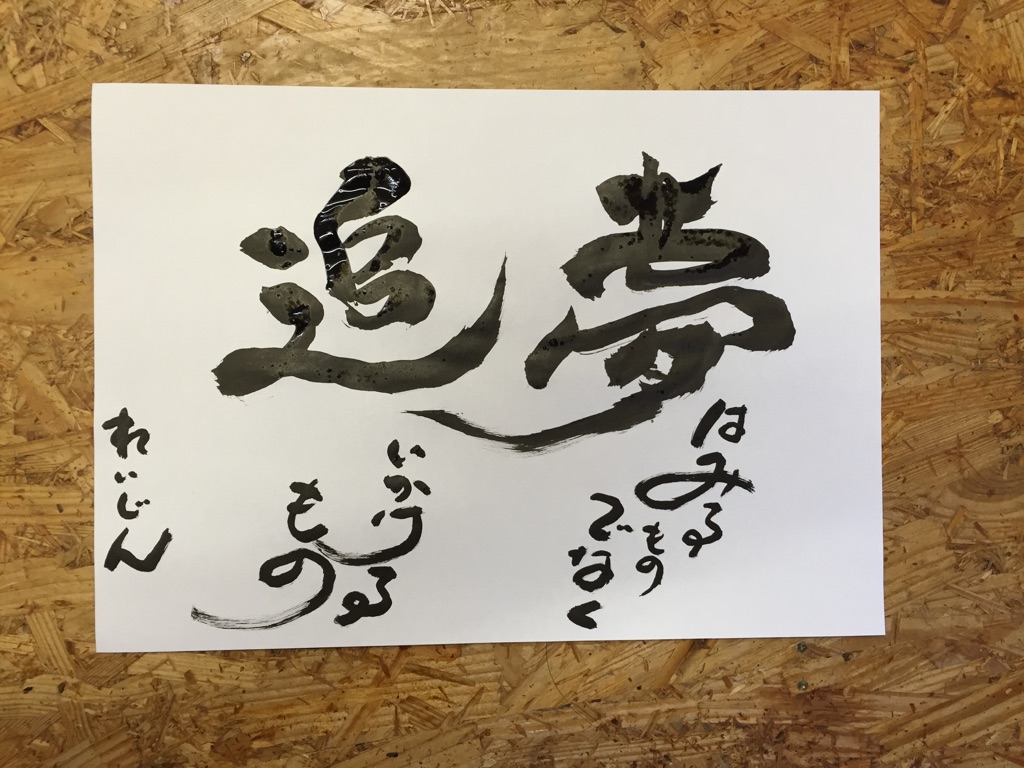 夢
はみる
もの
でなく
追
いかける
もの
れいじん